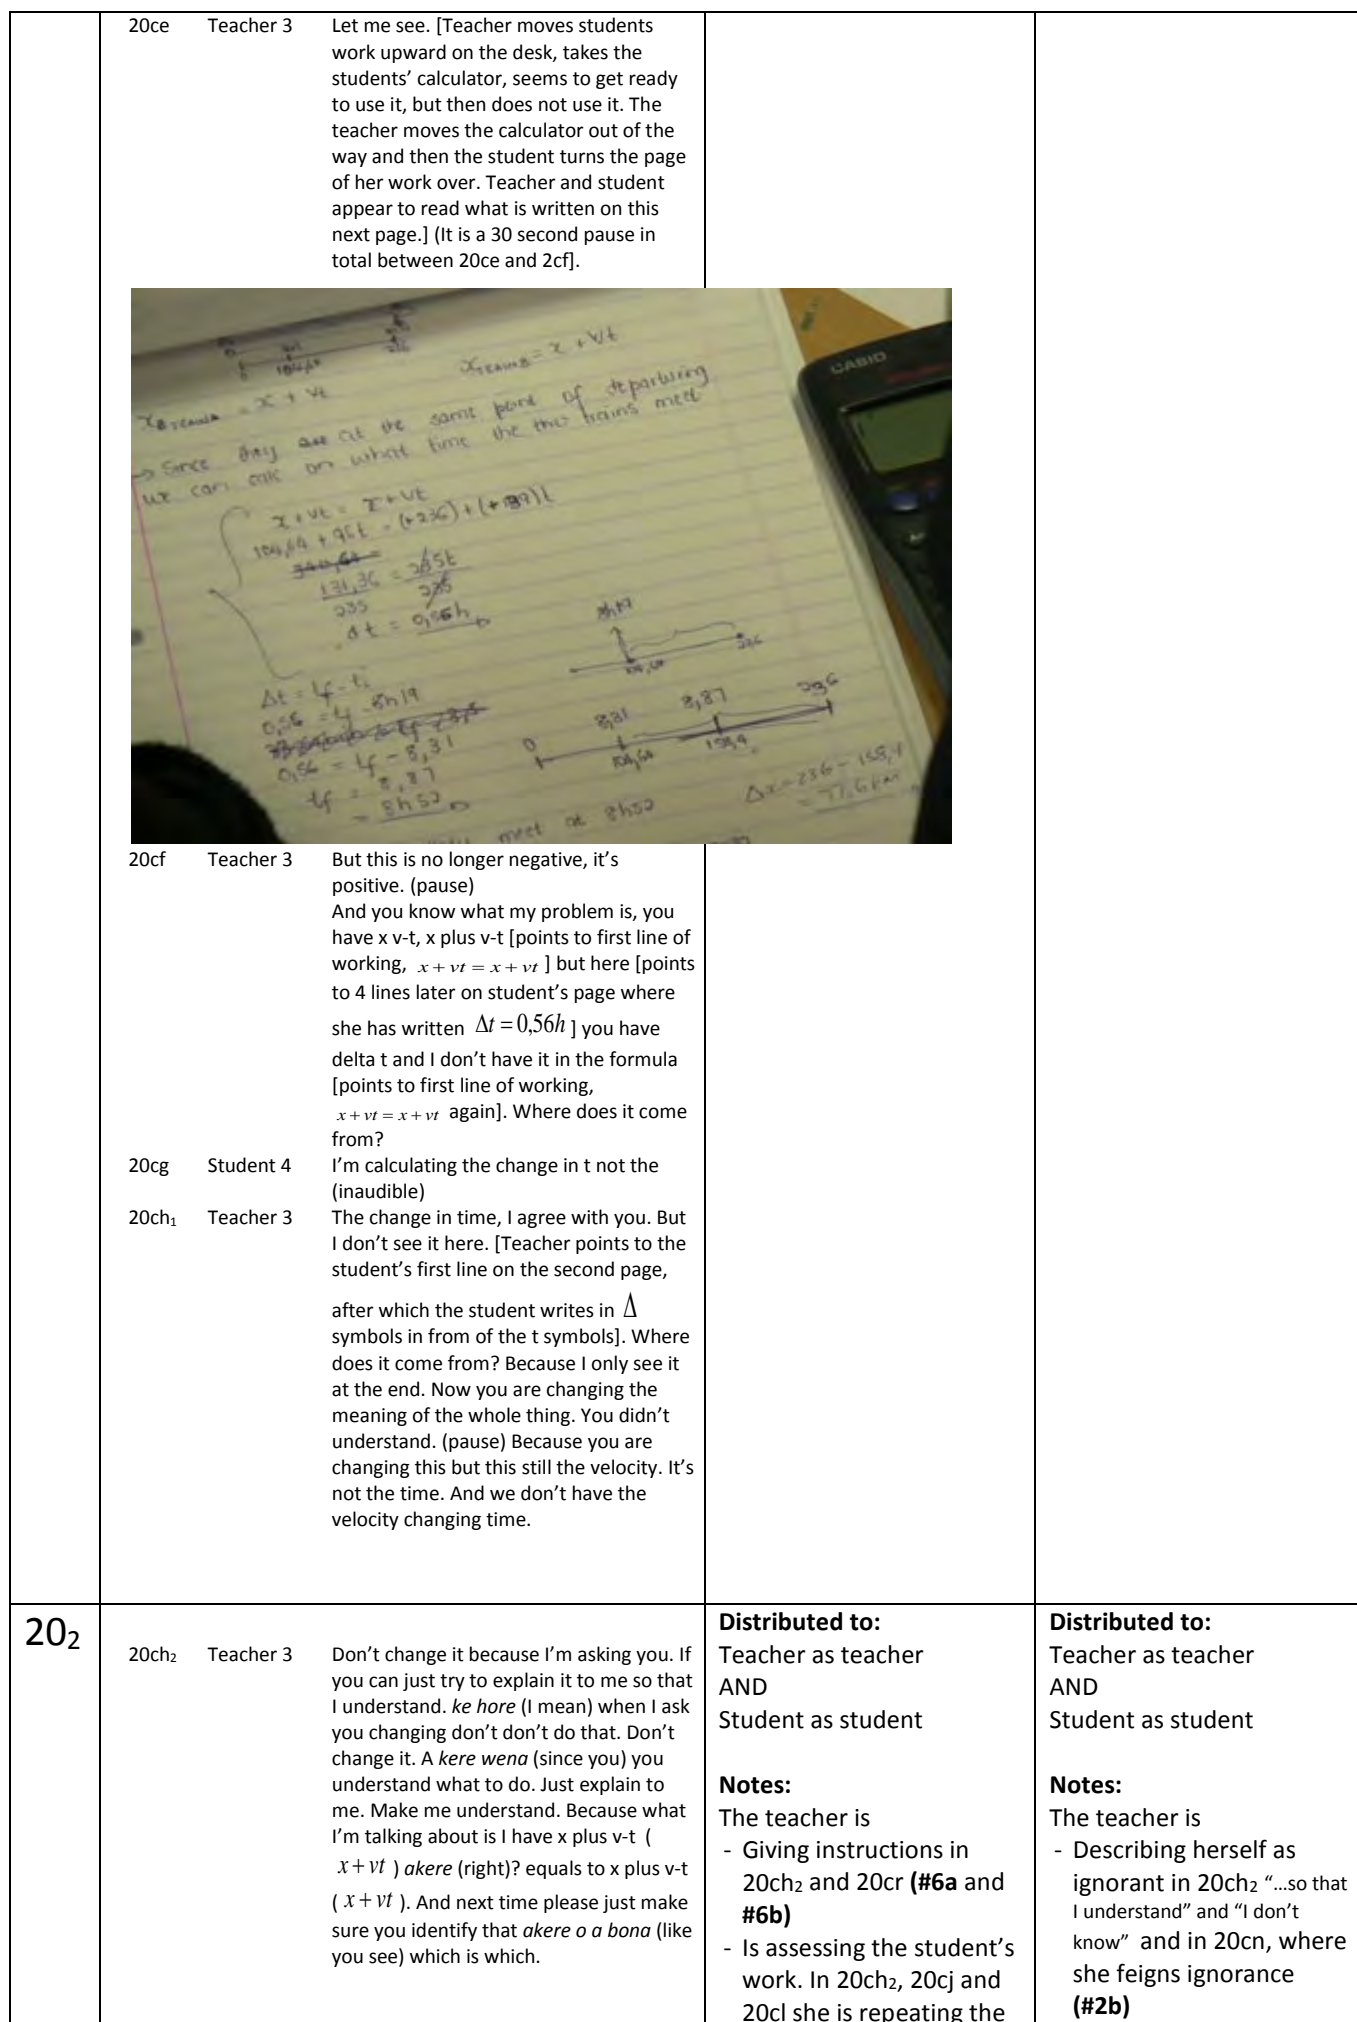 20ce Teacher 3 Let me see. [Teacher moves students
work upward on the desk, takes the
students’ calculator, seems to get ready
to use it, but then does not use it. The
teacher moves the calculator out of the
way and then the student turns the page
of her work over. Teacher and student
appear to read what is written on this
next page.] (It is a 30 second pause in
total between 20ce and 2cf].
0 104,64 236
x = x + vt
x = x + vt
CASIO
→ Since they are at the same point of departuring
we can calc on what time the two trains meet
x + vt = x + vt
104,64 + 96t = (+236) + (+139)t
131,36 = 235t
235 235
Δt = 0,56h
104,64
Δt = tf - ti
0,56 = tf - 8h19
0,56 = tf - 8,31
tf = 8,87
= 8h52
8,31 8,87 236
0 104,64 158,4
Δx = 236 - 158,4
= 77,6 km
meet at 8h52
20cf Teacher 3 But this is no longer negative, it’s
positive. (pause)
And you know what my problem is, you
have x v-t, x plus v-t [points to first line of
working, x + vt = x + vt ] but here [points
to 4 lines later on student’s page where
she has written Δt = 0,56h ] you have
delta t and I don’t have it in the formula
[points to first line of working,
x + vt = x + vt again]. Where does it come
from?
20cg Student 4 I’m calculating the change in t not the
(inaudible)
20ch₁ Teacher 3 The change in time, I agree with you. But
I don’t see it here. [Teacher points to the
student’s first line on the second page,
after which the student writes in Δ
symbols in from of the t symbols]. Where
does it come from? Because I only see it
at the end. Now you are changing the
meaning of the whole thing. You didn’t
understand. (pause) Because you are
changing this but this still the velocity. It’s
not the time. And we don’t have the
velocity changing time.
20₂
20ch₂ Teacher 3 Don’t change it because I’m asking you. If
you can just try to explain it to me so that
I understand. ke hore (I mean) when I ask
you changing don’t don’t do that. Don’t
change it. A kere wena (since you) you
understand what to do. Just explain to
me. Make me understand. Because what
I’m talking about is I have x plus v-t (
x + vt ) akere (right)? equals to x plus v-t
( x + vt ). And next time please just make
sure you identify that akere o a bona (like
you see) which is which.
Distributed to:
Teacher as teacher
AND
Student as student
Notes:
The teacher is
- Giving instructions in
20ch₂ and 20cr (#6a and
#6b)
- Is assessing the student’s
work. In 20ch₂, 20cj and
20cl she is repeating the
Distributed to:
Teacher as teacher
AND
Student as student
Notes:
The teacher is
- Describing herself as
ignorant in 20ch₂ “…so that
I understand” and “I don’t
know” and in 20cn, where
she feigns ignorance
(#2b)